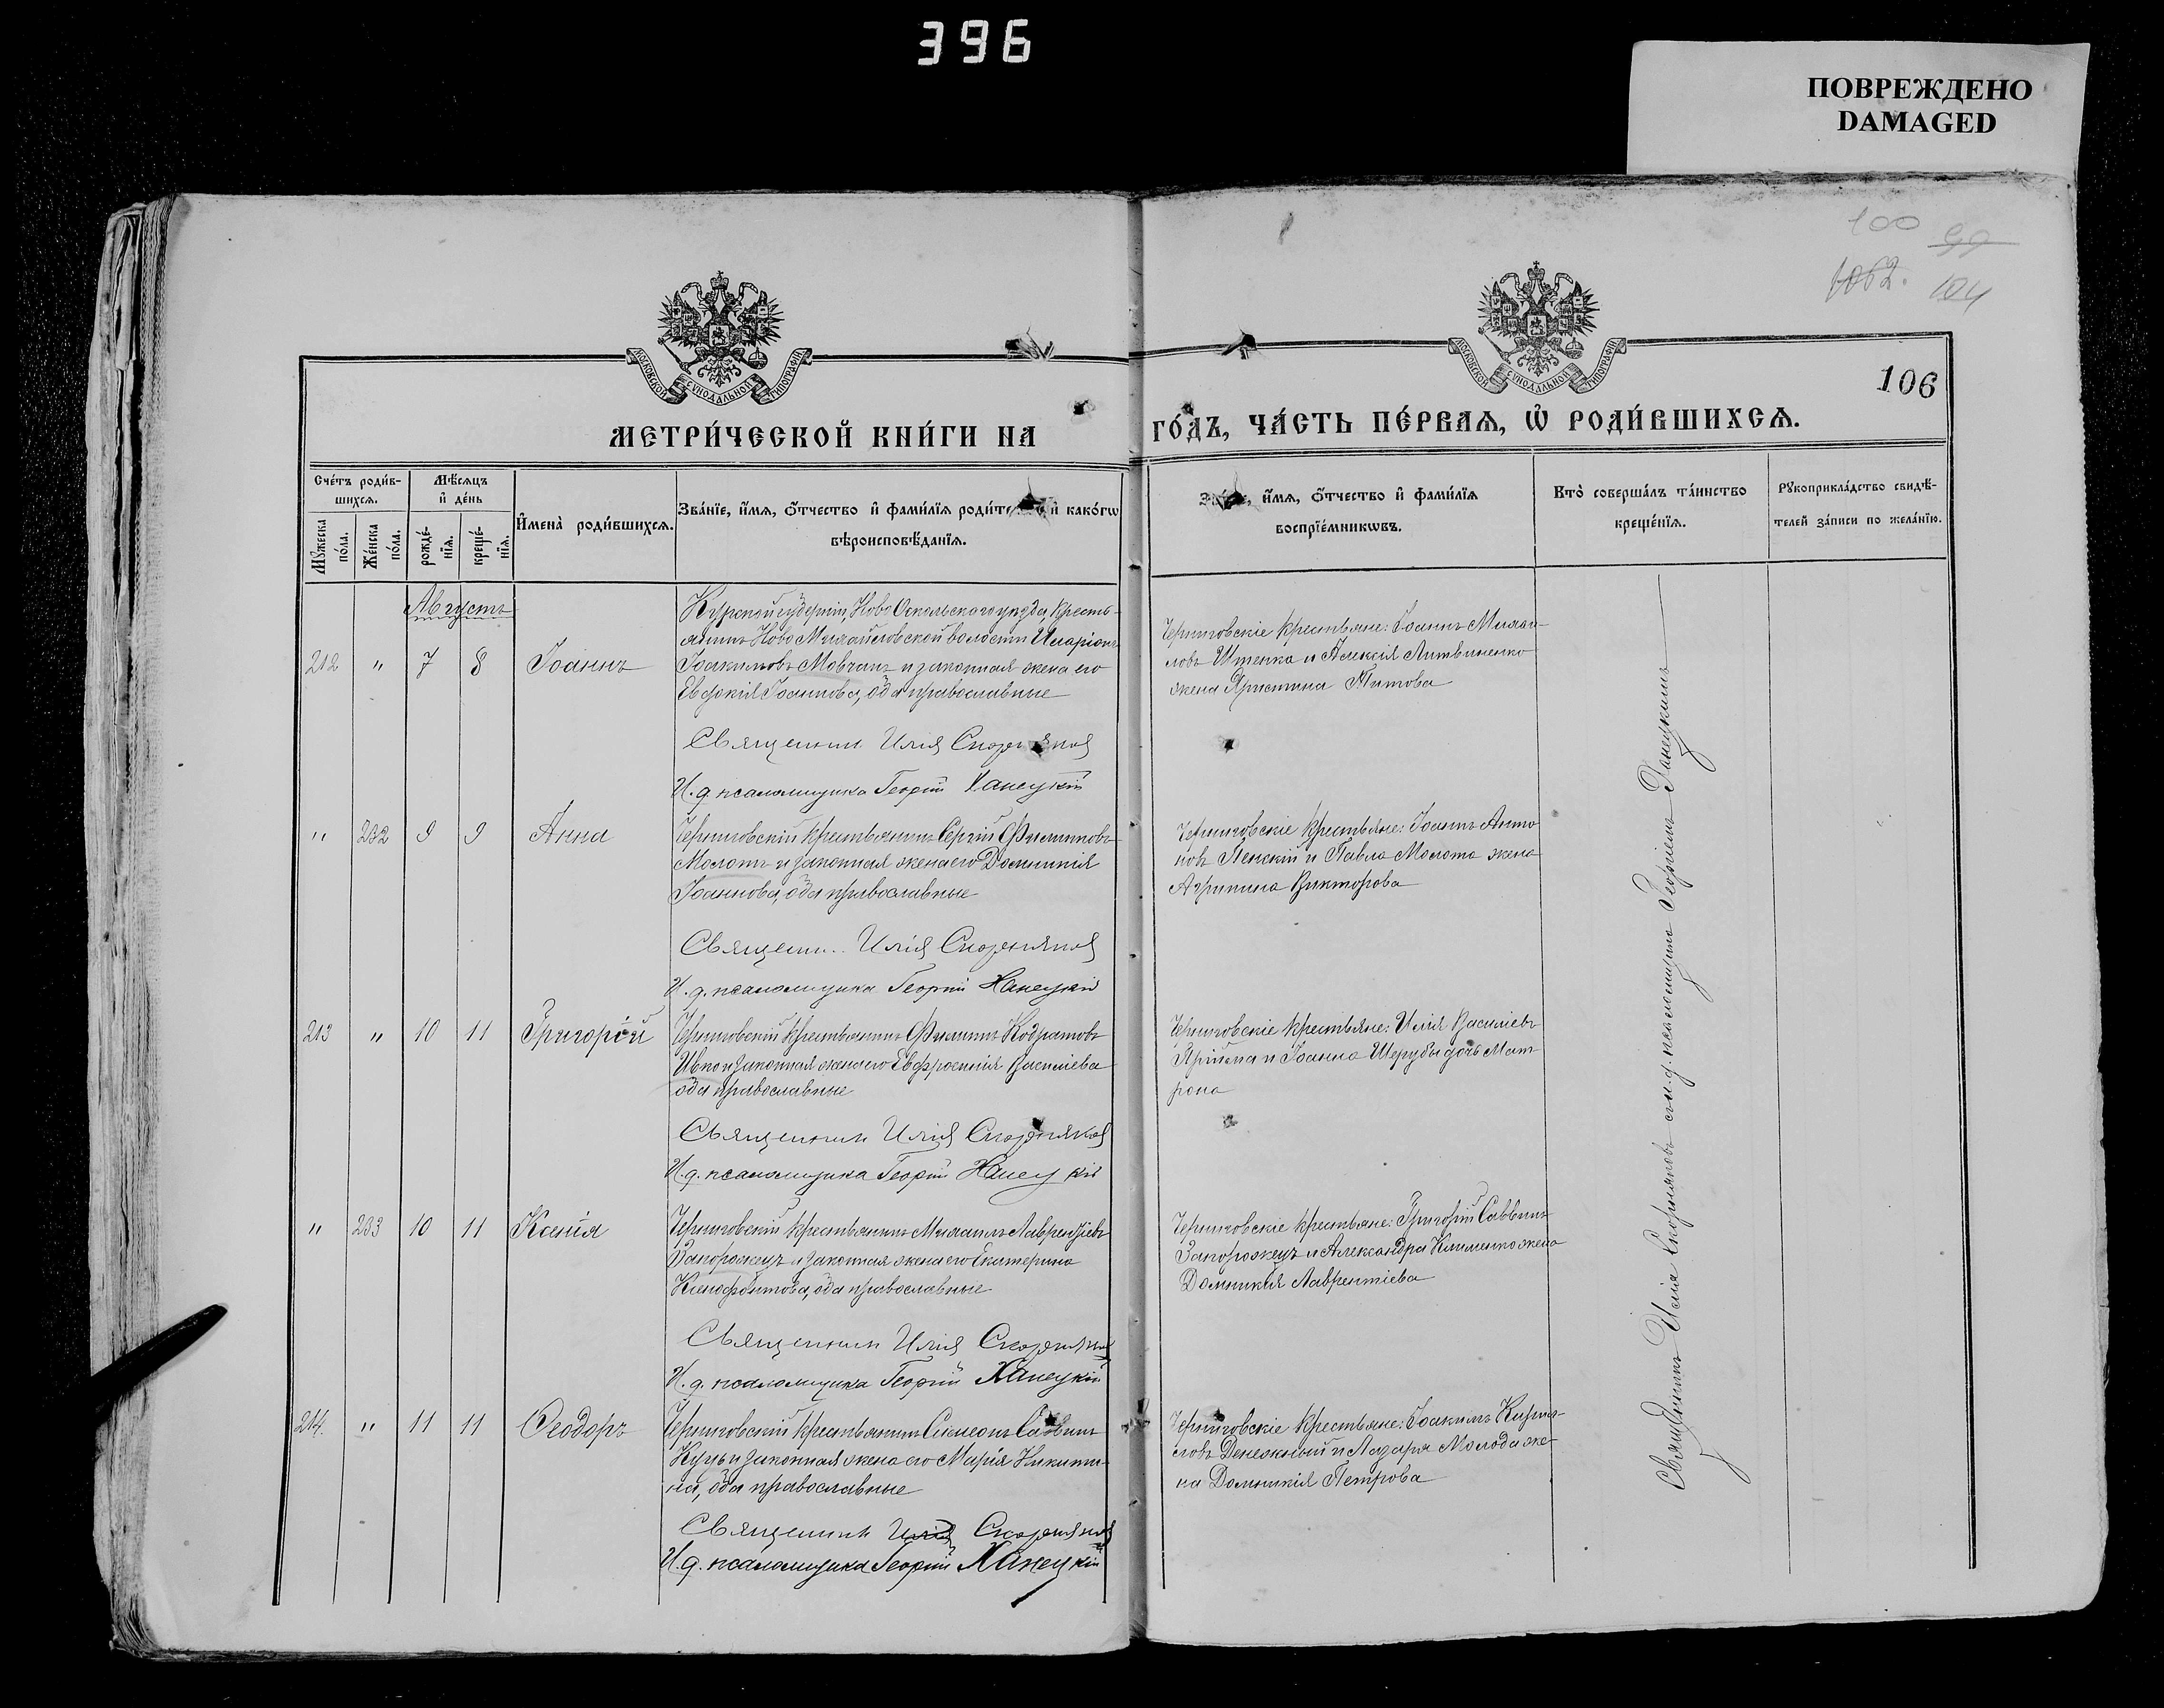 396
ПОВРЕЖДЕНО
DAMAGED
100 99
1062. 104
106
МОСКОВСКОЙ СУНОДАЛЬНОЙ ТИПОГРАФІИ
МОСКОВСКОЙ СУНОДАЛЬНОЙ ТИПОГРАФІИ
МЕТРИ́ЧЕСКОЙ КНИ́ГИ НА
ГО́ДЪ, ЧА́СТЬ ПЕ́РВАѦ, Ѡ҆ РОДИ́ВШИХСѦ.
Сче́тъ роди́в-
шихся.
Мꙋ́жеска по́ла.
Же́нска по́ла.
Мѣ́сяцъ
и҆ де́нь
рожде́-
нїя.
креще́-
нїя.
И҆мена̀ роди́вшихся.
Зва́нїе, и҆́мя, ѻ҆́тчество и҆ фами́лїя роди́те и҆ како́гѡ
вѣроисповѣ́данїя.
и҆́мя, ѻ҆́тчество и҆ фами́лїя
воспрїе́мникѡвъ.
Кто̀ соверша́лъ та́инство
креще́нїя.
Рꙋкоприкла́дство свидѣ́-
телей за́писи по жела́нїю.
Августъ
212 " 7 8 Іоаннъ
Курской губерніи, Ново Оскольскаго уѣзда, кресть-
янинъ Ново Михайловской волости Иларіонъ
Іоакимовъ Мовчанъ и законная жена его
Евдокія Іоаннова, оба православные
Священник Илія Скорняков
И.д. псаломщика Георгій Ханецкій
Черниговскіе крестьяне: Іоаннъ Михаи-
ловъ Ищенко и Алексія Литвиненко
жена Христина Титова
" 232 9 9 Анна
Черниговскій крестьянинъ Сергій Филиповъ
Молотъ и законная жена его Домникія
Іоаннова, оба православные
Священн.. Илія Скорняков
И.д. псаломщика Георгій Ханецкій
Черниговскіе крестьяне: Іоаннъ Анто
новъ Пенскій и Павла Молота жена
Агрипина Викторова
213 " 10 11 Григорій
Черниговскій крестьянинъ Филипъ Кодратовъ
Ивко и законная жена его Евфросинія Василіева
оба православные
Священник Илія Скорняков
И.д. псаломщика Георгій Ханецкій
Черниговскіе крестьяне: Илія Василіевъ
Прийма и Іоанна Шерубы дочь Мат
рона
" 233 10 11 Ксенія
Черниговскій крестьянинъ Михаилъ Лаврентіевъ
Запорожецъ и законная жена его Екатерина
Ксенофонтова, оба православные
Священник Илія Скорняков
И.д. псаломщика Георгій Ханецкій
Черниговскіе крестьяне: Григорій Саввинъ
Запорожецъ и Александра Клименко жена
Домникія Лаврентіева
214. " 11 11 Ѳеодоръ
Черниговскій крестьянинъ Симеонъ Саввинъ
Куць и законная жена его Марія Никити-
на, оба православные
Священник Илія Скорняков
И.д. псаломщика Георгій Ханецкій
Черниговскіе крестьяне: Іоакимъ Кирил-
ловъ Денежный и Лазаря Молода же-
на Домникія Петрова
Священникъ Илія Скорняковъ съ и.д. псаломщика Георгіемъ Ханецкимъ